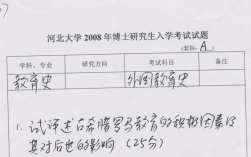 河北大学 2008 年博士研究生入学考试试题
(卷别: A )
学科、专业 研究方向 考试科目 备注
教育史 外国教育史
1. 试评述古希腊罗马教育的积极因素及
其对后世的影响 (25分)